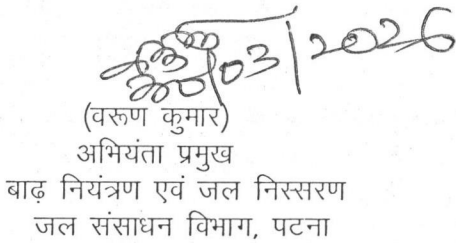 /03/2026
(वरूण कुमार)
अभियंता प्रमुख
बाढ़ नियंत्रण एवं जल निस्सरण
जल संसाधन विभाग, पटना